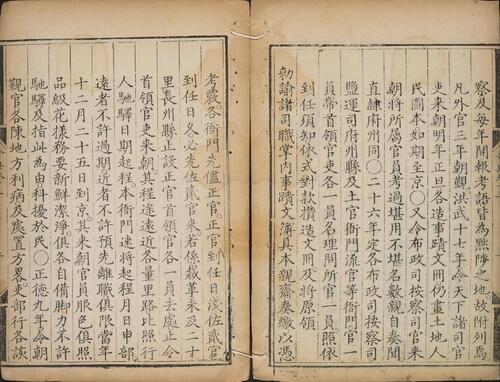 察及每年開報考語皆為黜陟之地故附列焉
凡外官三年朝覲洪武十七年令天下諸司官
吏來朝明年正旦各造事蹟文冊仍畫土地人
民圖本如期至京〇又令各布政司按察司官來
朝將所屬官員考過堪用不堪名數親自奏聞
直隷府州同〇二十六年定各布政司按察司
鹽運司府州縣及土官衙門流官等衙門官一
員帶首領官吏各一員名理問所官一員照依
到任須知依式對款攢造文冊及將原領
勑諭諸司職掌內事蹟文簿具本親齎奏繳以憑
考覈各衙門先儘正官正官到任日淺佐貳官
到任日多必先佐貳官來若係裁革未及二十
里長州縣止設正官首領官各一員去處止令
首領官吏來朝其程途遠近各量里路比照行
人馳驛日期起程本衙門速將起程月日申部
遠者不許過期近者不許預先離職俱限當年
十二月二十五日到京其來朝官員服色俱照
品級花樣務要新鮮潔淨俱各自備脚力不許
馳驛及指此為由科擾於民〇正德九年令朝
覲官各陳地方利病及處置方畧吏部行各該